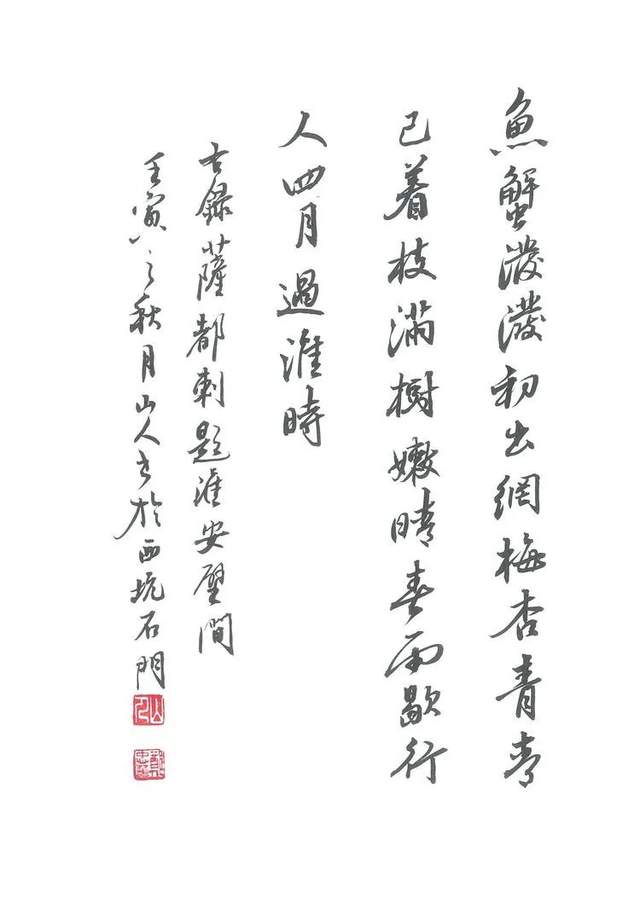 魚蟹潑潑初出網梅杏青青
已着枝滿樹嫩晴春雨歇行
人四月過淮時
右錄薩都刺題淮安壁間
壬寅之秋月山人書於西坑石門
山人